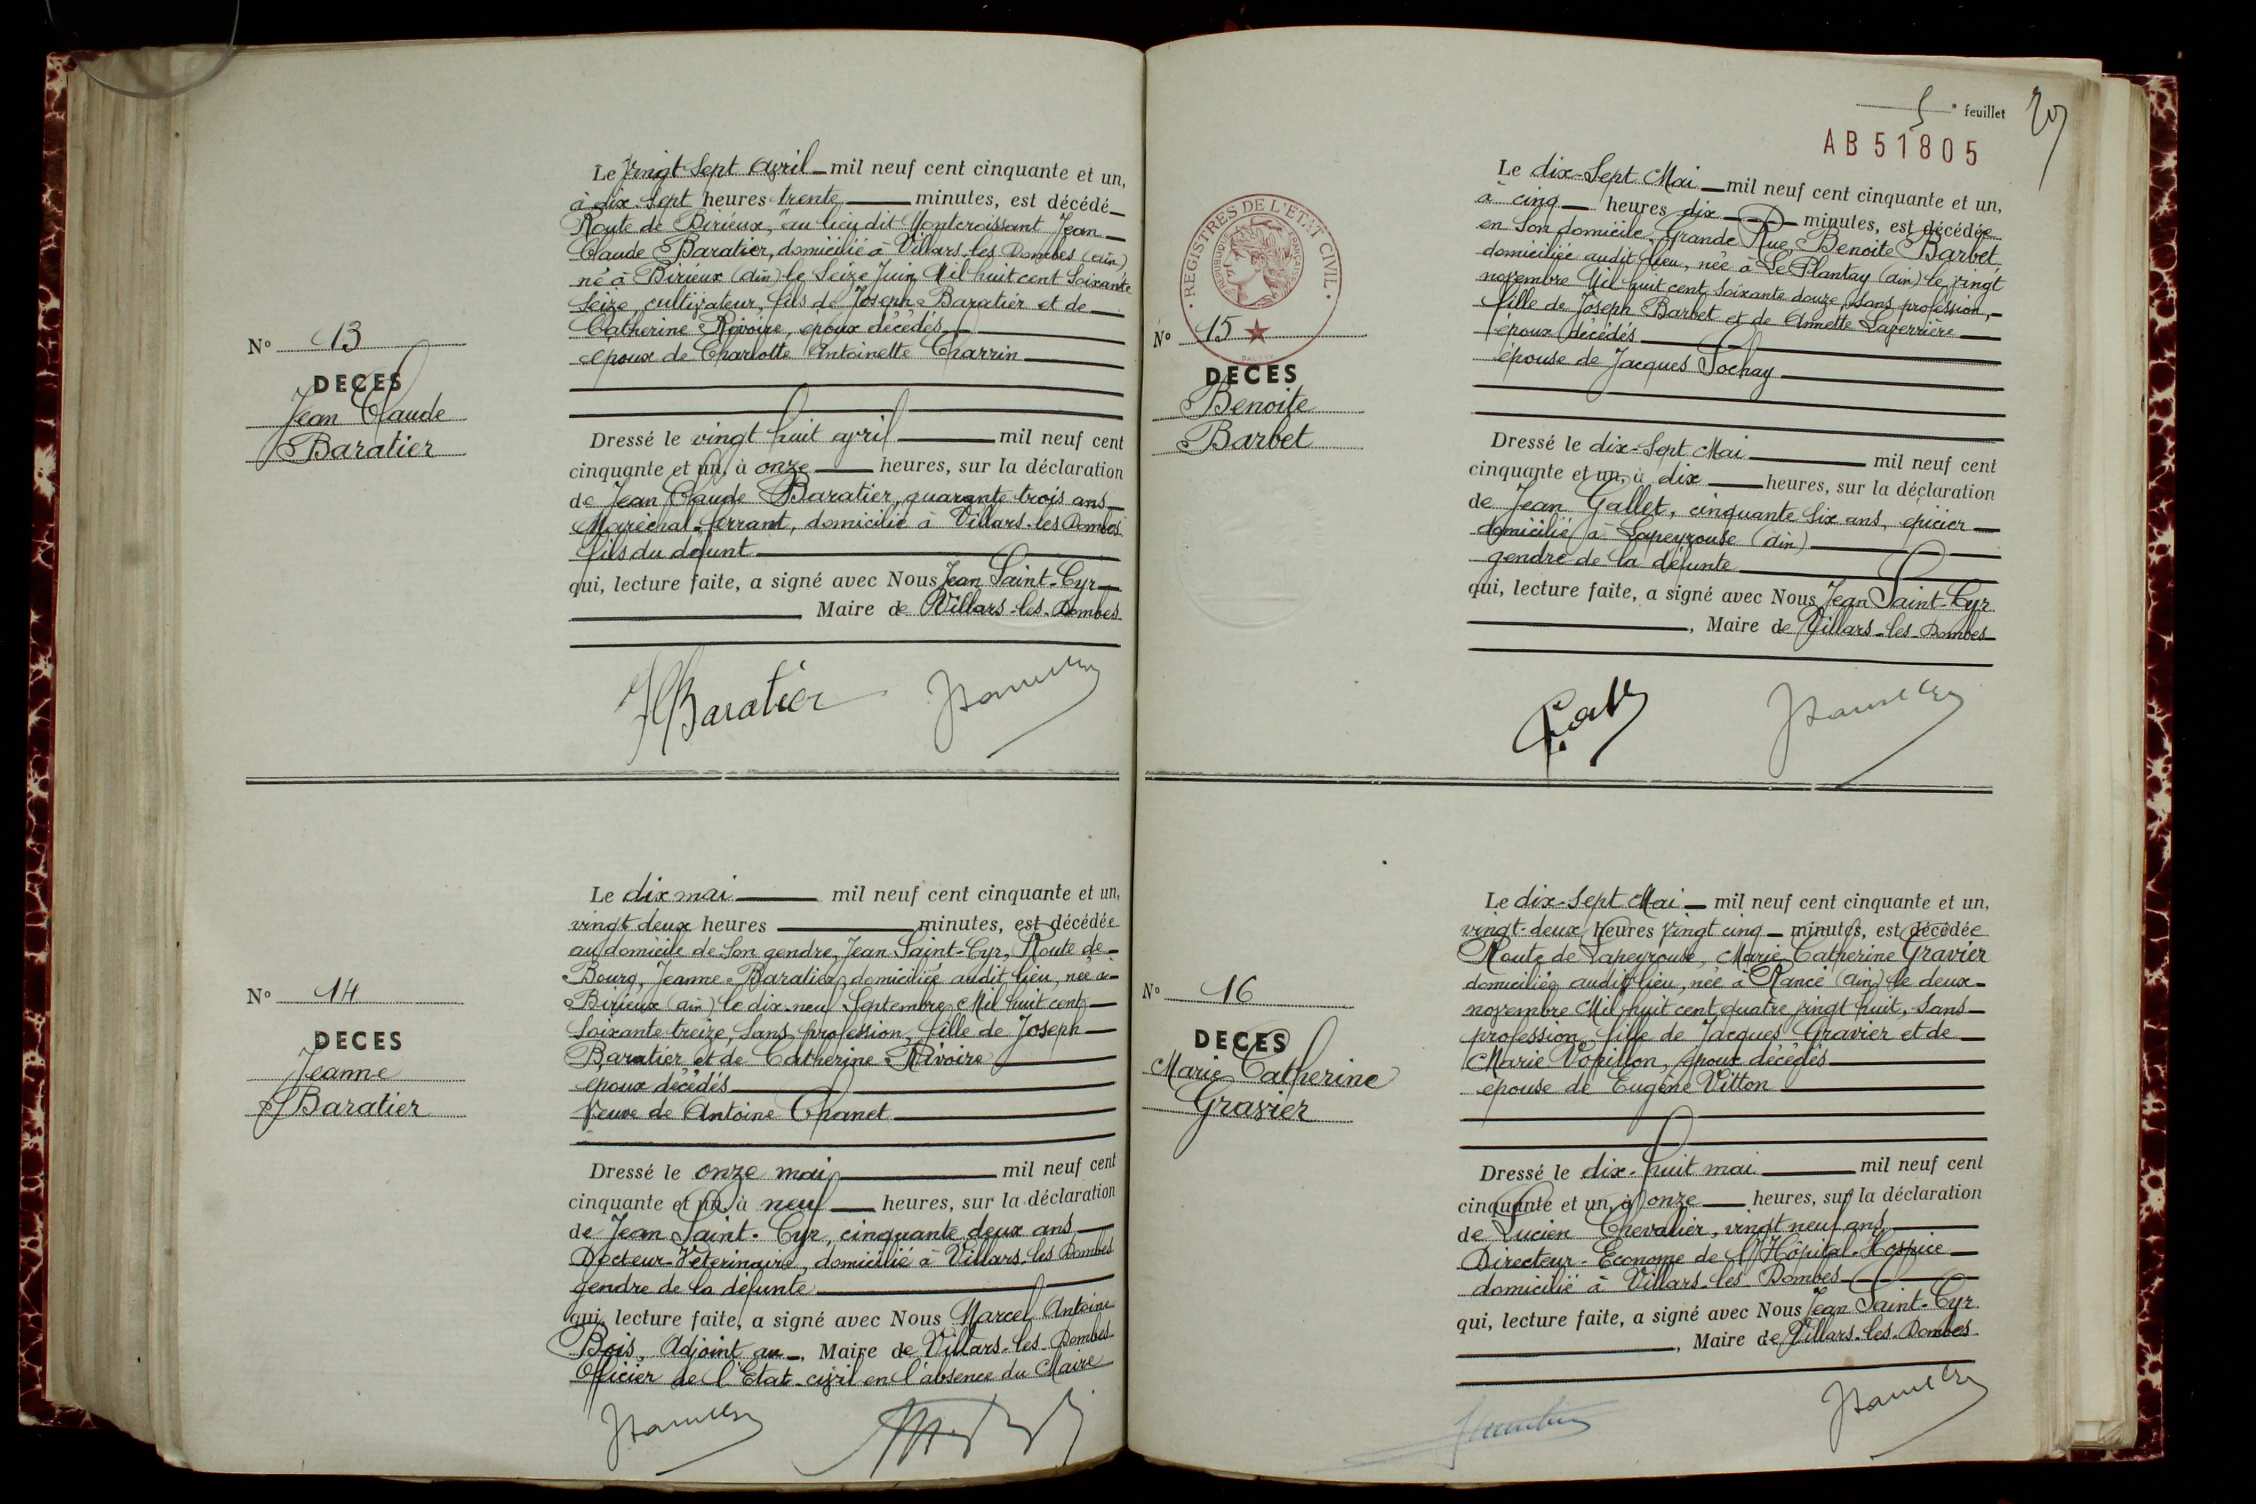 Le vingt sept avril mil neuf cent cinquante et un,
à dix-sept heures trente minutes, est décédé
Route de Birieux, au lieu dit Montcroissant Jean
Claude Baratier, domicilié à Villars-les-Dombes (ain)
né à Birieux (ain) le Seize Juin Mil huit cent Soixante
Seize, cultivateur, fils de Joseph Baratier et de
Catherine Rivoire, époux décédés
époux de Charlotte Antoinette Charrin
N° 13
DECES
Jean Claude
Baratier
Dressé le vingt huit avril mil neuf cent
cinquante et un, à onze heures, sur la déclaration
de Jean Claude Baratier, quarante trois ans
Maréchal-ferrant, domicilié à Villars-les-Dombes
fils du défunt
qui, lecture faite, a signé avec Nous Jean Saint-Cyr
Maire de Villars-les-Dombes
JBaratier
Le dix mai mil neuf cent cinquante et un,
vingt deux heures minutes, est décédée
au domicile de Son gendre, Jean Saint-Cyr, Route de
Bourg, Jeanne Baratier, domiciliée audit lieu, née à
Birieux (ain) le dix-neuf Septembre Mil huit cent
Soixante treize, Sans profession, fille de Joseph
Baratier et de Catherine Rivoire
époux décédés
Veuve de Antoine Chanet
N° 14
DECES
Jeanne
Baratier
Dressé le onze mai mil neuf cent
cinquante et un à neuf heures, sur la déclaration
de Jean Saint-Cyr, cinquante deux ans
Docteur-Véterinaire, domicilié à Villars-les-Dombes
gendre de la défunte
qui, lecture faite, a signé avec Nous Marcel Antoine
Bois, Adjoint au Maire de Villars-les-Dombes
Officier de l'Etat-civil en l'absence du Maire
5 e feuillet
AB51805
REGISTRES DE L'ETAT CIVIL
REPUBLIQUE FRANÇAISE
Le dix-Sept Mai mil neuf cent cinquante et un,
à cinq heures dix minutes, est décédée
en Son domicile, Grande Rue, Benoite Barbet,
domiciliée audit lieu, née à Le Plantay (ain) le vingt
novembre Mil huit cent Soixante douze, Sans profession,
fille de Joseph Barbet et de Annette Laperrière
époux décédés
épouse de Jacques Sochay
N° 15
DECES
Benoite
Barbet
Dressé le dix-Sept Mai mil neuf cent
cinquante et un, à dix heures, sur la déclaration
de Jean Gallet, cinquante Six ans, épicier
domicilié à Lapeyrouse (ain)
gendre de la défunte
qui, lecture faite, a signé avec Nous Jean Saint-Cyr
, Maire de Villars-les-Dombes
Le dix-Sept Mai mil neuf cent cinquante et un,
vingt-deux heures vingt cinq minutes, est décédée
Route de Lapeyrouse, Marie Catherine Gravier
domiciliée audit lieu, née à Rancé (ain) le deux
novembre Mil huit cent quatre vingt huit, Sans
profession, fille de Jacques Gravier et de
Marie Vopillon, époux décédés
épouse de Eugène Vitton
N° 16
DECES
Marie Catherine
Gravier
Dressé le dix-huit mai mil neuf cent
cinquante et un, à onze heures, sur la déclaration
de Lucien Chevalier, vingt neuf ans
Directeur-Econome de l'Hôpital-Hospice
domicilié à Villars-les-Dombes
qui, lecture faite, a signé avec Nous Jean Saint-Cyr
, Maire de Villars-les-Dombes